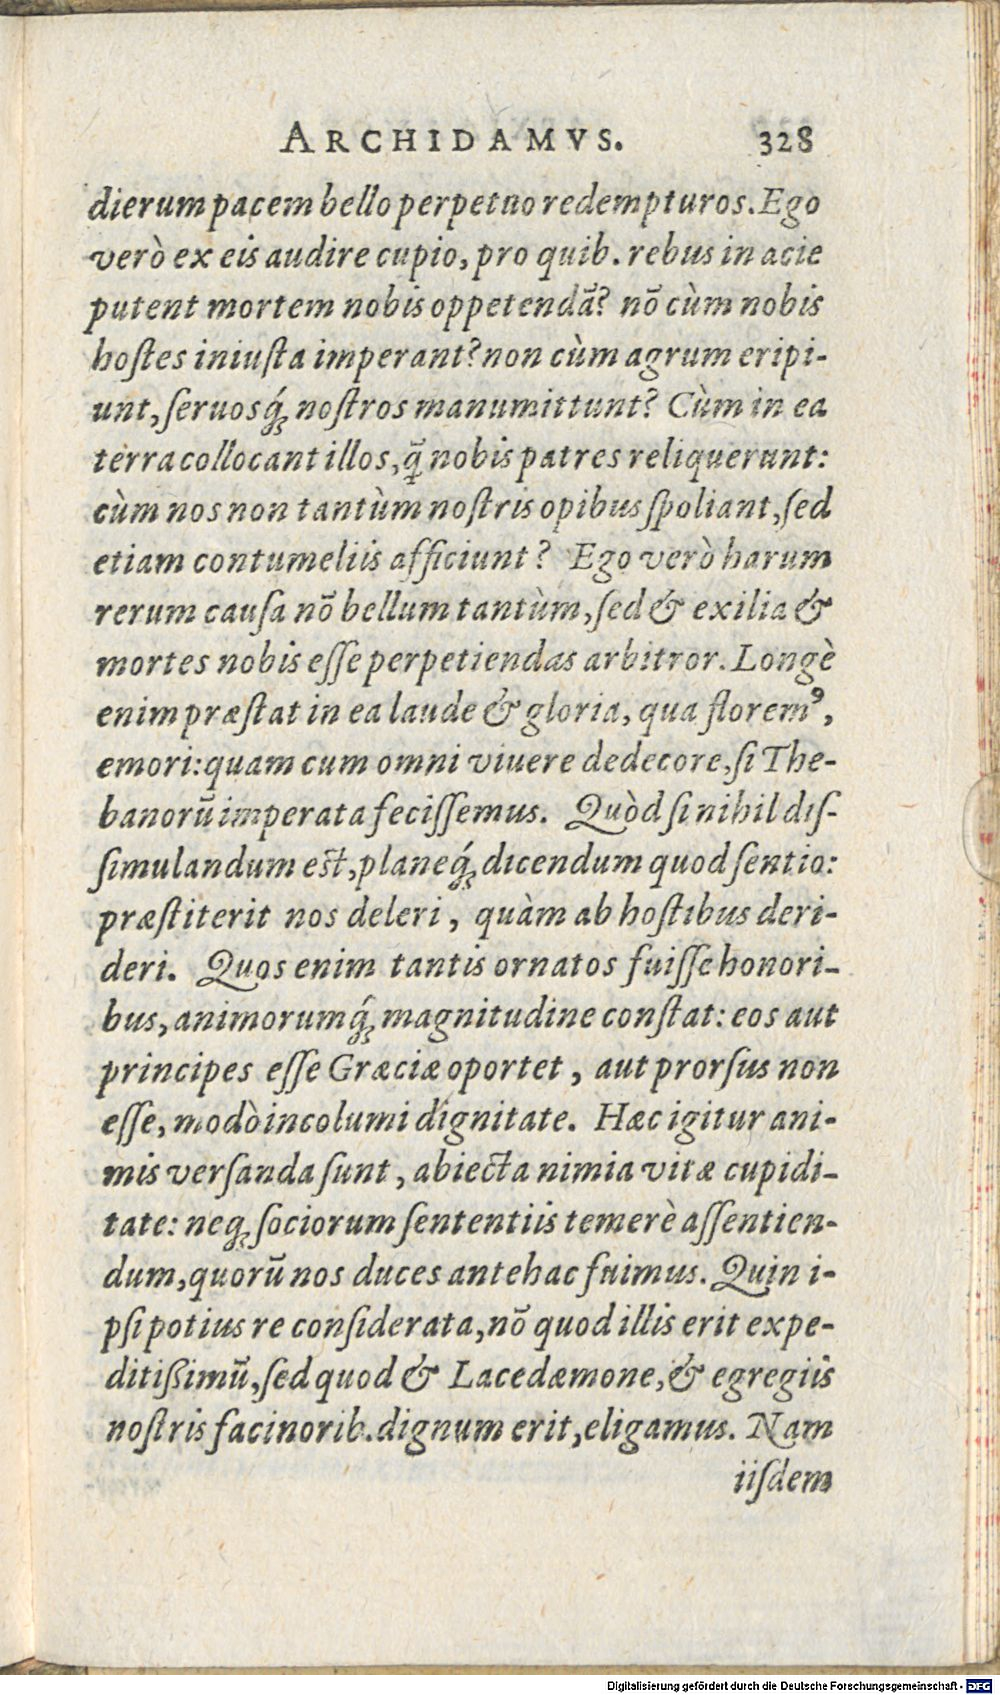 ARCHIDAMVS. 328
dierum pacem bello perpetuo redempturos. Ego
verò ex eis audire cupio, pro quib. rebus in acie
putent mortem nobis oppetendā? nō cùm nobis
hostes iniusta imperant? non cùm agrum eripi-
unt, seruosq́; nostros manumittunt? Cùm in ea
terra collocant illos, q̃ nobis patres reliquerunt:
cùm nos non tantùm nostris opibus spoliant, sed
etiam contumeliis afficiunt? Ego verò harum
rerum causa nō bellum tantùm, sed & exilia &
mortes nobis esse perpetiendas arbitror. Longè
enim præstat in ea laude & gloria, qua florem⁹,
emori: quam cum omni viuere dedecore, si The-
banorū imperata fecissemus. Quòd si nihil dis-
simulandum est, planeq́; dicendum quod sentio:
præstiterit nos deleri, quàm ab hostibus deri-
deri. Quos enim tantis ornatos fuisse honori-
bus, animorumq́; magnitudine constat: eos aut
principes esse Græciæ oportet, aut prorsus non
esse, modò incolumi dignitate. Hæc igitur ani-
mis versanda sunt, abiecta nimia vitæ cupidi-
tate: neq; sociorum sententiis temerè assentien-
dum, quorū nos duces antehac fuimus. Quin i-
psi potius re considerata, nō quod illis erit expe-
ditißimū, sed quod & Lacedæmone, & egregiis
nostris facinorib. dignum erit, eligamus. Nam
iisdem
Digitalisierung gefördert durch die Deutsche Forschungsgemeinschaft - DFG